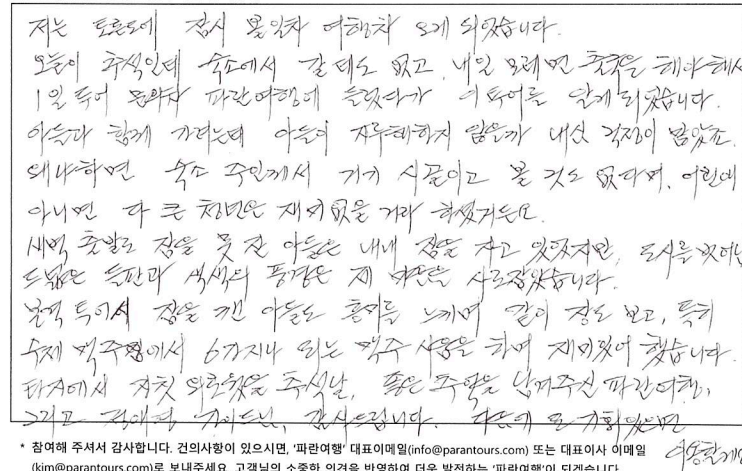 저는 토론토에 잠시 볼일차 여행차 오게 되었습니다.
오늘이 추석인데 숙소에서 갈 데도 없고, 내일 모레면 출국을 해야해서
1일 투어 문의차 파란여행에 들렀다가 이 투어를 알게 되었습니다.
아들과 함께 가려는데 아들이 지루해하지 않을까 내심 걱정이 많았죠.
왜냐하면 숙소 주인께서 거기 시골이고 볼 것도 없다며, 어린애
아니면 다 큰 청년은 재미없을 거라 하셨거든요.
새벽 출발로 잠을 못 잔 아들은 내내 잠을 자고 있었지만, 도시를 벗어난
드넓은 들판과 색색의 풍경은 제 마음을 사로잡았습니다.
본격 투어서 잠을 깬 아들도 흥미를 느끼며 같이 장도 보고, 특히
수제 맥주집에서 6가지나 되는 맥주 시음을 하며 재미있어 했습니다.
타지에서 자칫 외로웠을 추석날, 좋은 추억을 남겨주신 파란여행,
그리고 가이드님, 감사드립니다. 다음에 또 기회있으면
이용할게요
* 참여해 주셔서 감사합니다. 건의사항이 있으시면, '파란여행' 대표이메일(info@parantours.com) 또는 대표이사 이메일
(kim@parantours.com)로 보내주세요. 고객님의 소중한 의견을 반영하여 더욱 발전하는 '파란여행'이 되겠습니다.